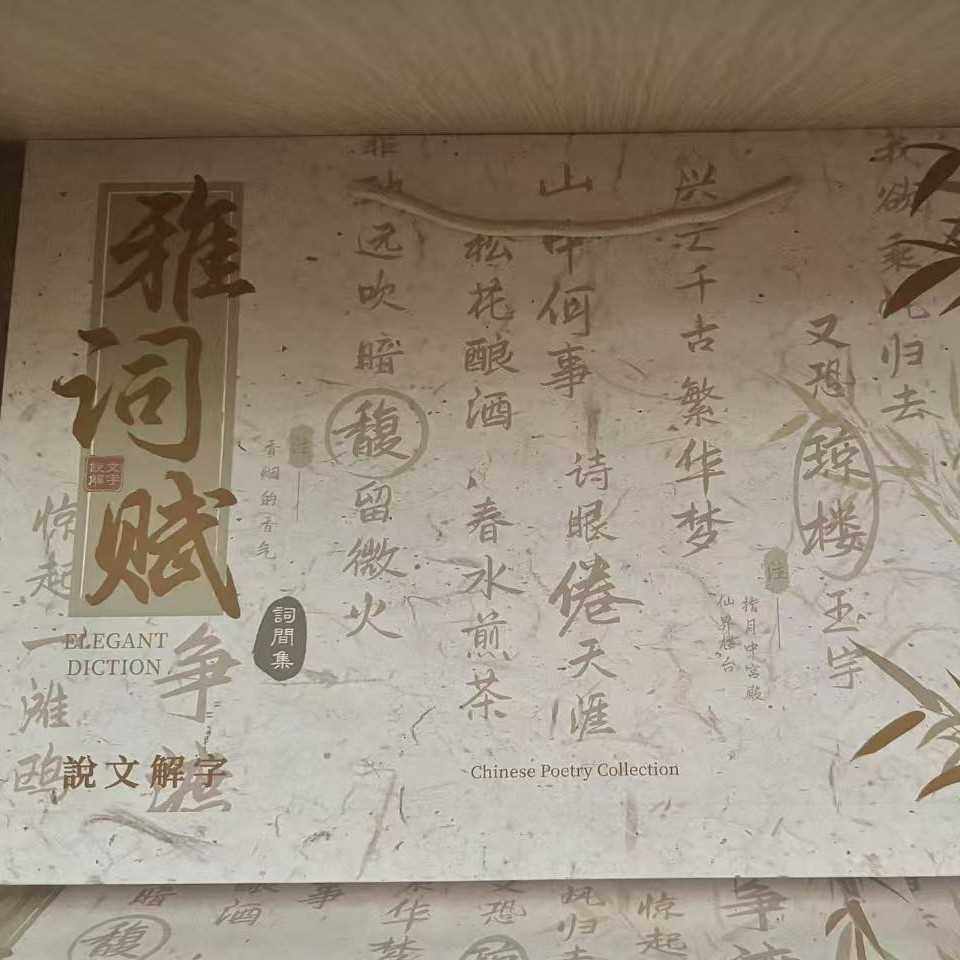 雅词赋
說文解字
ELEGANT
DICTION
詞間集
說文解字
我欲乘风归去
又恐琼楼玉宇
注
指月中宫殿
仙界楼台
兴亡千古繁华梦
诗眼倦天涯
山中何事
松花酿酒，春水煎茶
远吹暗馥留微火
注
香烟的香气
争渡
惊起一滩鸥
Chinese Poetry Collection
惊起
风归去
恐
华梦
事
酒
暗
馥
争